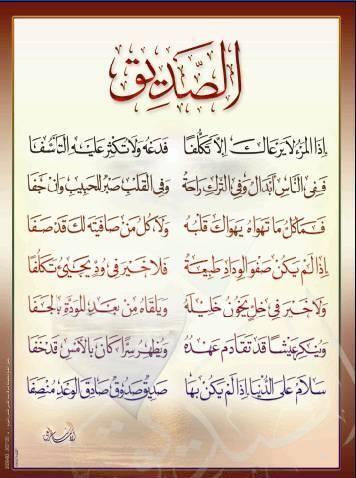 الصَّدِيق
إِذَا المَرْءُ لَا يَرْعَاكَ إِلَّا تَكَلُّفًا فَدَعْهُ وَلَا تُكْثِرْ عَلَيْهِ التَّأَسُّفَا
فَفِي النَّاسِ أَبْدَالٌ وَفِي التَّرْكِ رَاحَةٌ وَفِي القَلْبِ صَبْرٌ لِلْحَبِيبِ وَإِنْ جَفَا
فَمَا كُلُّ مَا تَهْوَاهُ يَهْوَاكَ قَلْبُهُ وَلَا كُلُّ مَنْ صَافَيْتَهُ لَكَ قَدْ صَفَا
إِذَا لَمْ يَكُنْ صَفْوُ الوِدَادِ طَبِيعَةً فَلَا خَيْرَ فِي وُدٍّ يَجِيءُ تَكَلُّفَا
وَلَا خَيْرَ فِي خِلٍّ يَخُونُ خَلِيلَهُ وَيَلْقَاهُ مِنْ بَعْدِ المَوَدَّةِ بِالجَفَا
وَيُنْكِرُ عَيْشًا قَدْ تَقَادَمَ عَهْدُهُ وَيُظْهِرُ سِرًّا كَانَ بِالأَمْسِ قَدْ خَفَا
سَلَامٌ عَلَى الدُّنْيَا إِذَا لَمْ يَكُنْ بِهَا صَدِيقٌ صَدُوقٌ صَادِقُ الوَعْدِ مُنْصِفَا